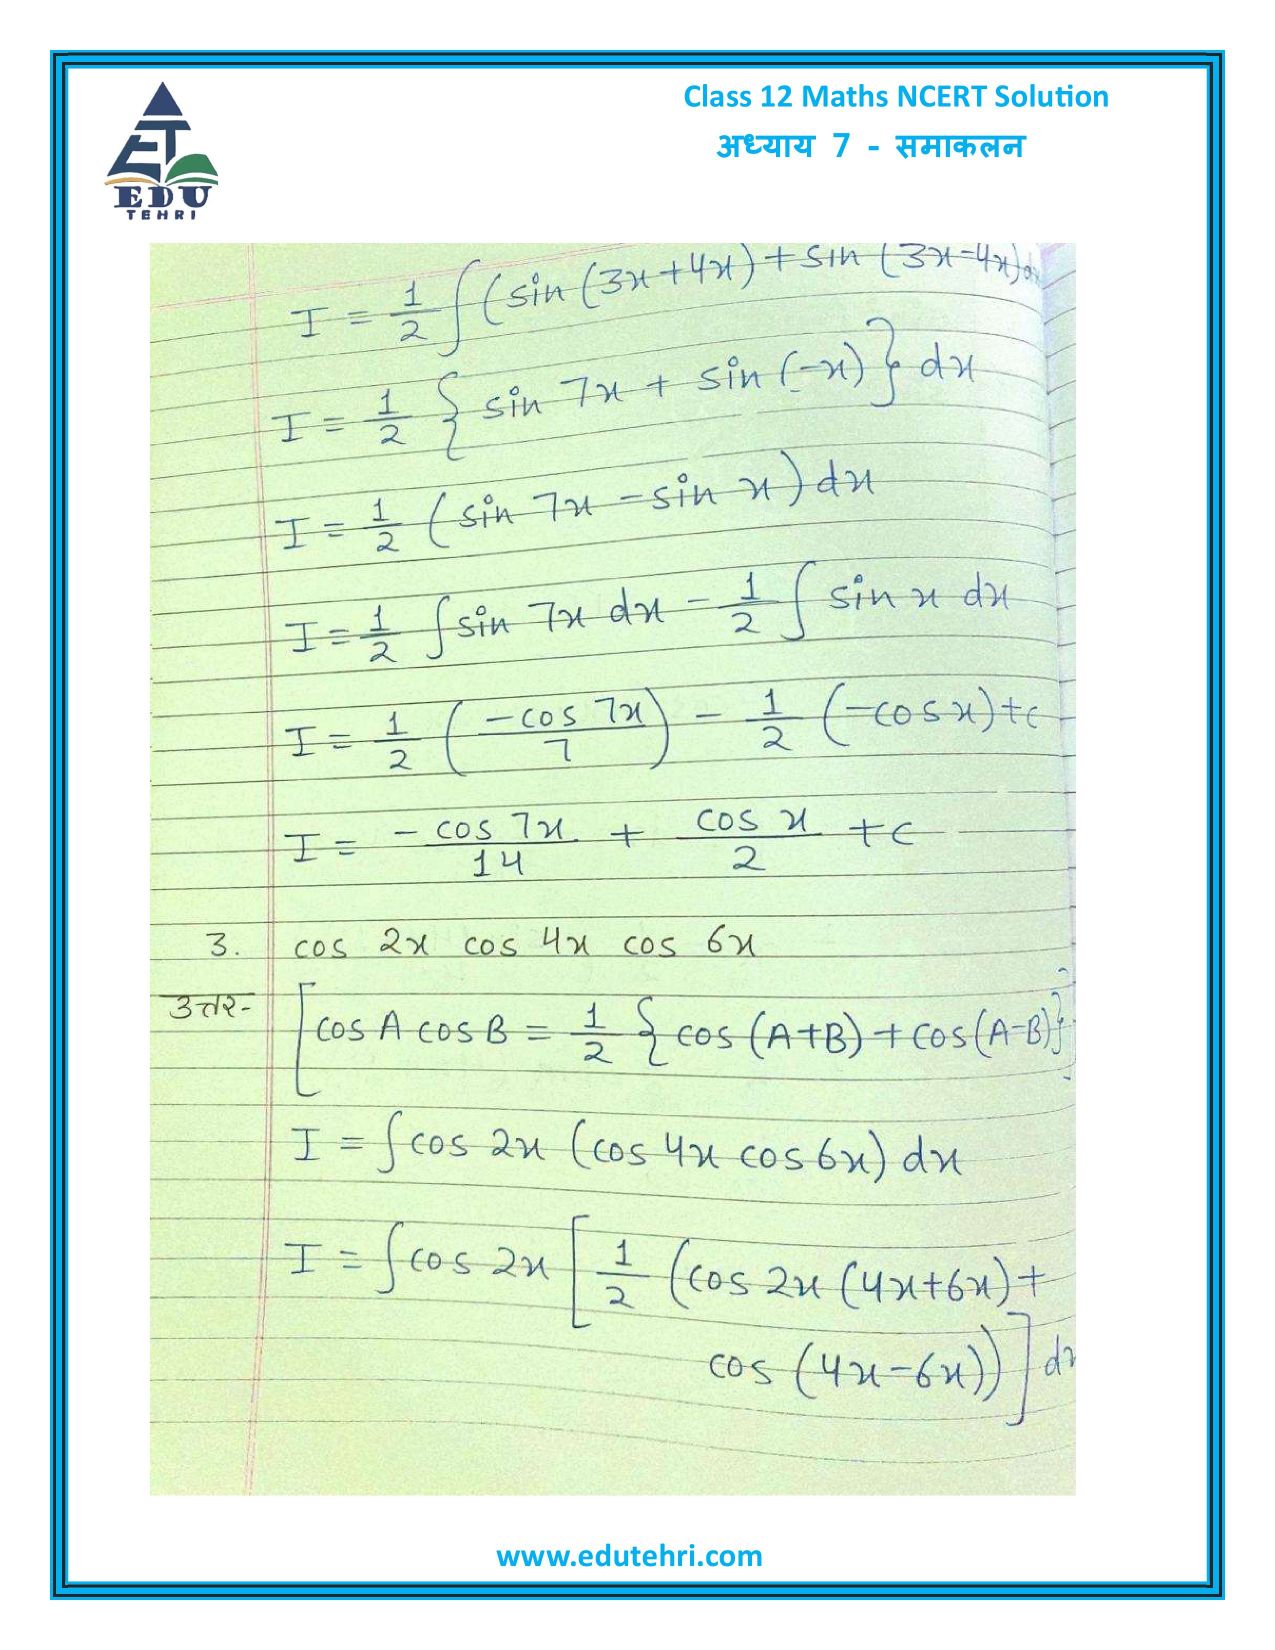 Class 12 Maths NCERT Solution
अध्याय 7 - समाकलन
EDU
TEHRI
I = 1/2 ∫(sin (3x+4x) + sin (3x-4x)dx
I = 1/2 { sin 7x + sin (-x) } dx
I = 1/2 ( sin 7x - sin x ) dx
I = 1/2 ∫ sin 7x dx - 1/2 ∫ sin x dx
I = 1/2 ( -cos 7x / 7 ) - 1/2 (-cos x) + c
I = - cos 7x / 14 + cos x / 2 + c
3. cos 2x cos 4x cos 6x
उत्तर- [ cos A cos B = 1/2 { cos (A+B) + cos (A-B)} ]
I = ∫ cos 2x (cos 4x cos 6x) dx
I = ∫ cos 2x [ 1/2 (cos 2x (4x+6x) +
cos (4x-6x)) ] dx
www.edutehri.com